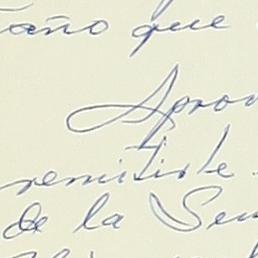 año que
Aprov
remitirte
de la Sem